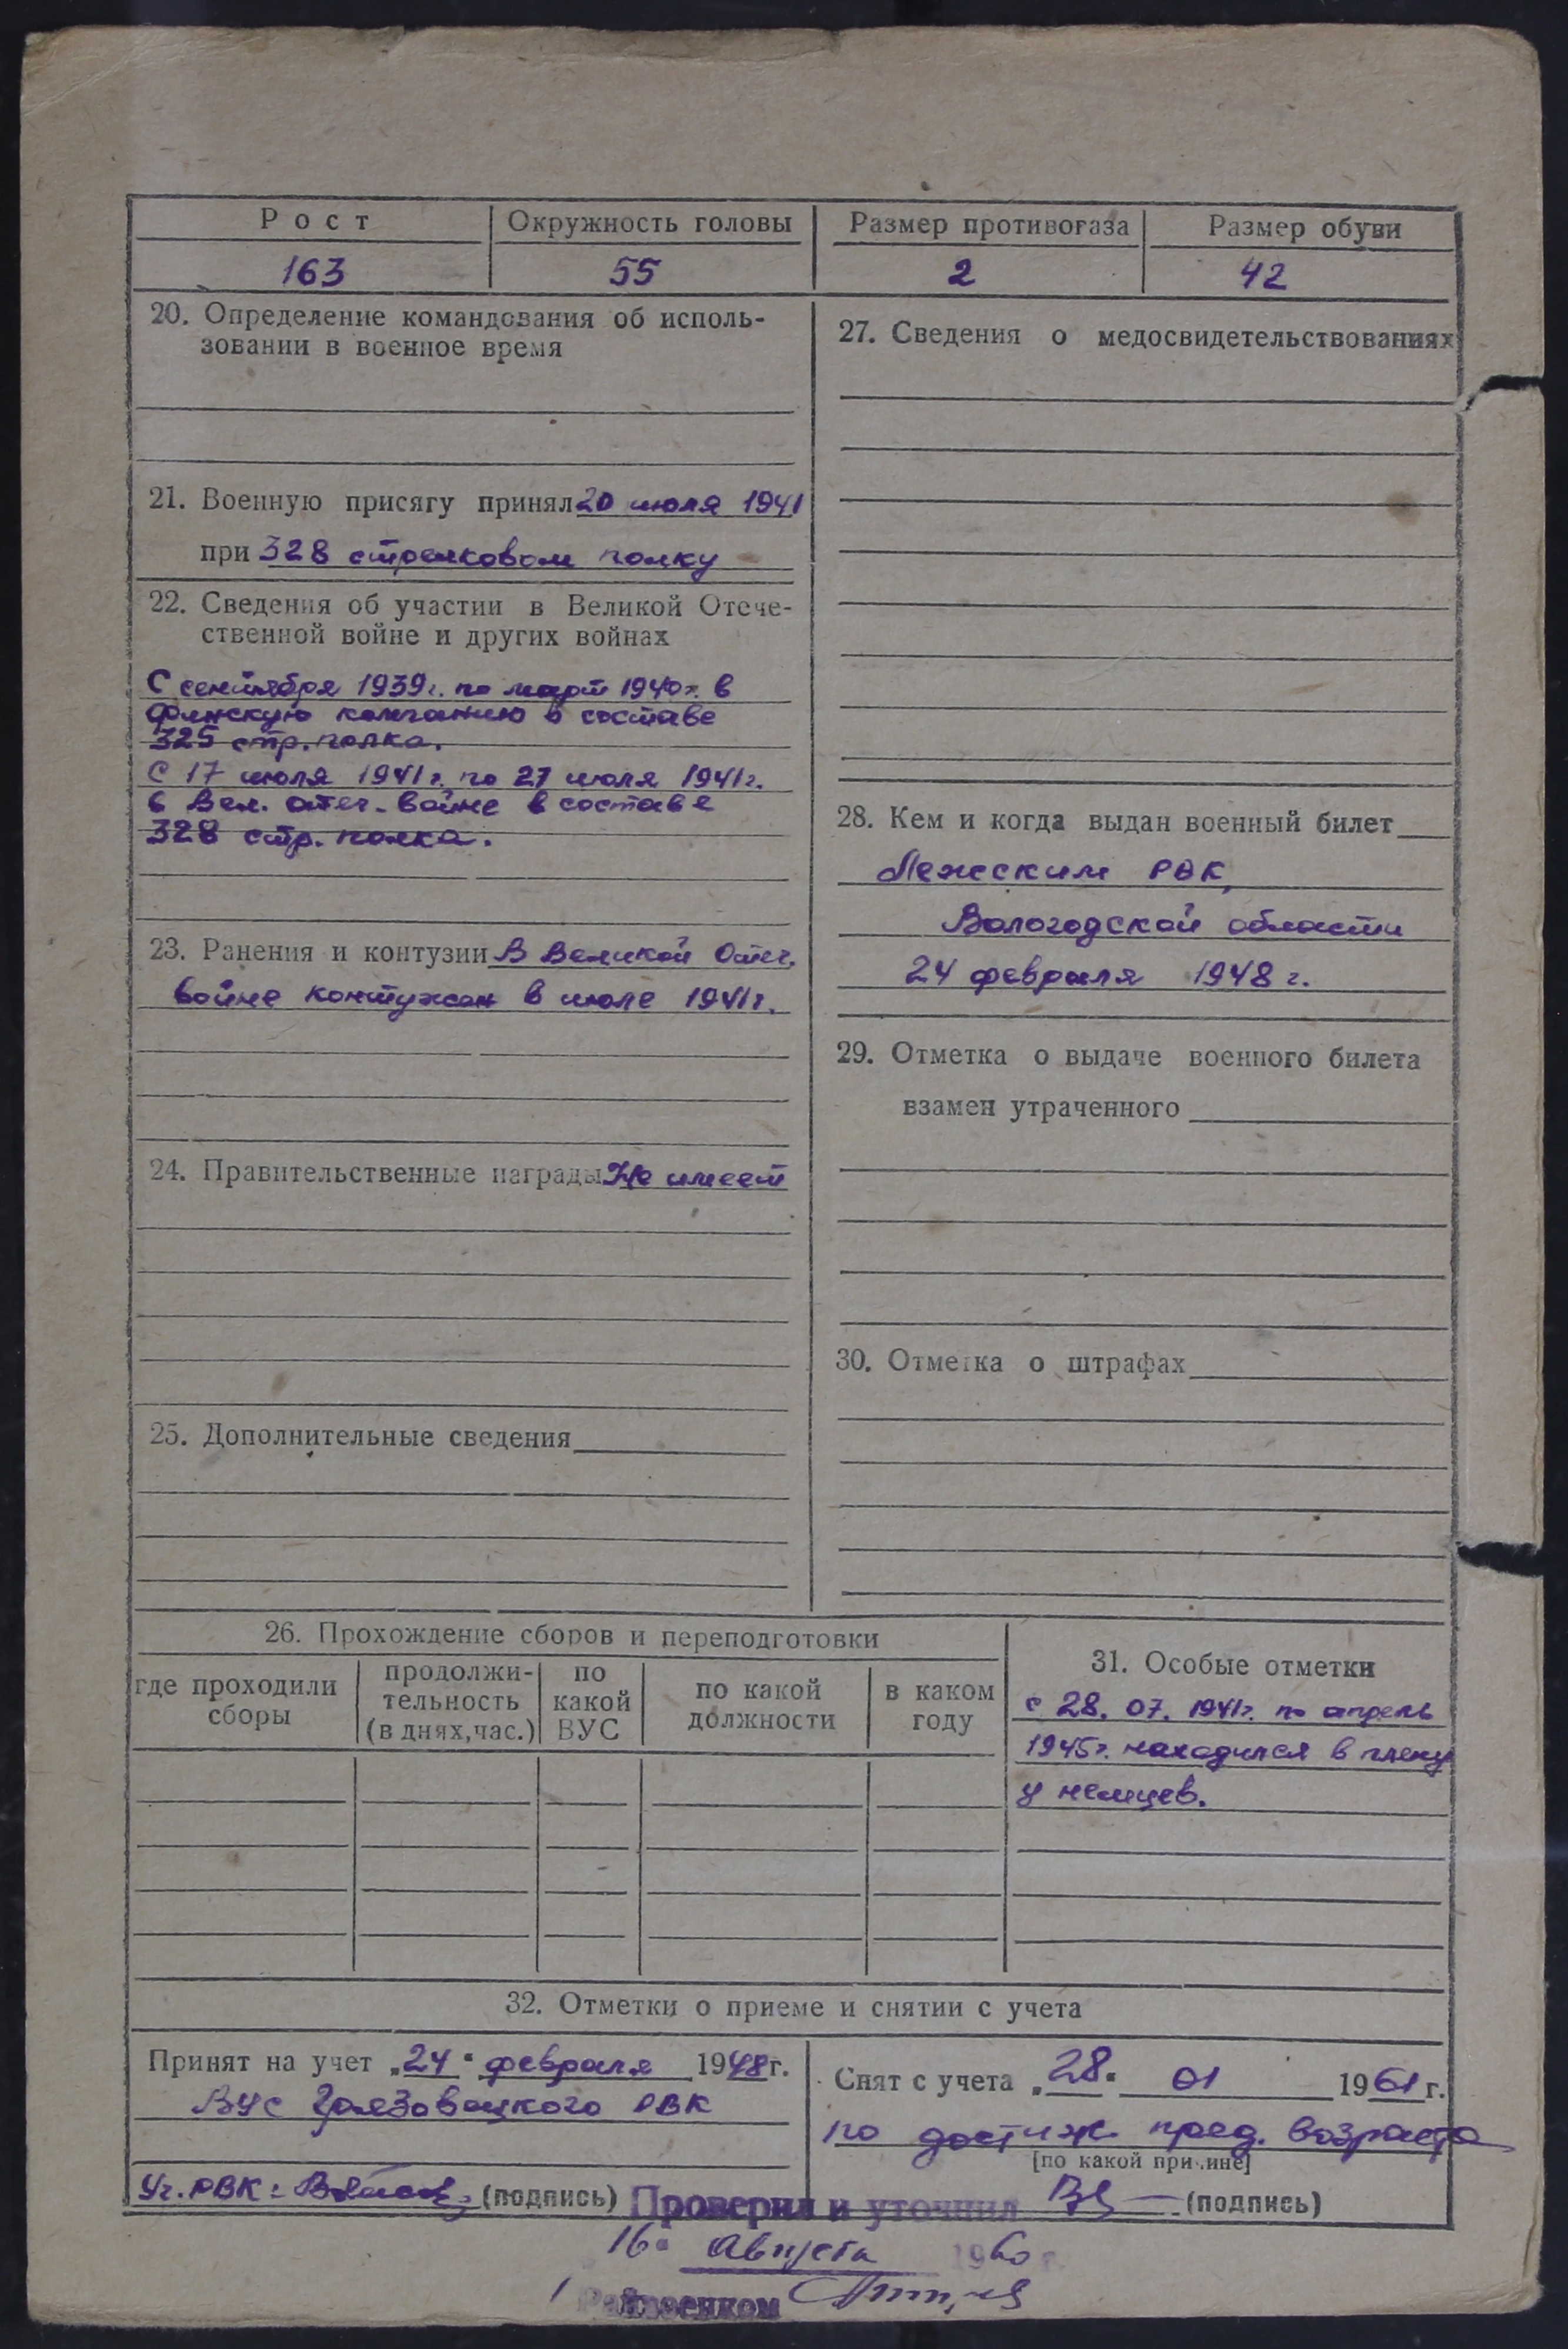 Рост
Окружность головы
Размер противогаза
Размер обуви
163
55
2
42
20. Определение командования об исполь-
зовании в военное время
21. Военную присягу принял 20 июля 1941
при 328 стрелковом полку
22. Сведения об участии в Великой Отече-
ственной войне и других войнах
С сентября 1939г. по март 1940г. в
финскую компанию в составе
325 стр. полка.
С 17 июля 1941г. по 27 июля 1941г.
в Вел. отеч. войне в составе
328 стр. полка.
23. Ранения и контузии В Великой Отеч.
войне контужен в июле 1941г.
24. Правительственные награды Не имеет
25. Дополнительные сведения
27. Сведения о медосвидетельствованиях
28. Кем и когда выдан военный билет
Лежским РВК,
Вологодской области
24 февраля 1948 г.
29. Отметка о выдаче военного билета
взамен утраченного
30. Отметка о штрафах
26. Прохождение сборов и переподготовки
где проходили
сборы
продолжи-
тельность
(в днях, час.)
по
какой
ВУС
по какой
должности
в каком
году
31. Особые отметки
с 28. 07. 1941г. по апрель
1945г. находился в плену
у немцев.
32. Отметки о приеме и снятии с учета
Принят на учет „24“ февраля 1948г.
ВУС Грязовецкого РВК
Уч. РВК: (подпись)
Снят с учета „28“ 01 1961г.
по достиж. пред. возраста
[по какой причине]
(подпись)
Проверил и уточнил
16 августа 1960 г.
Райвоенком